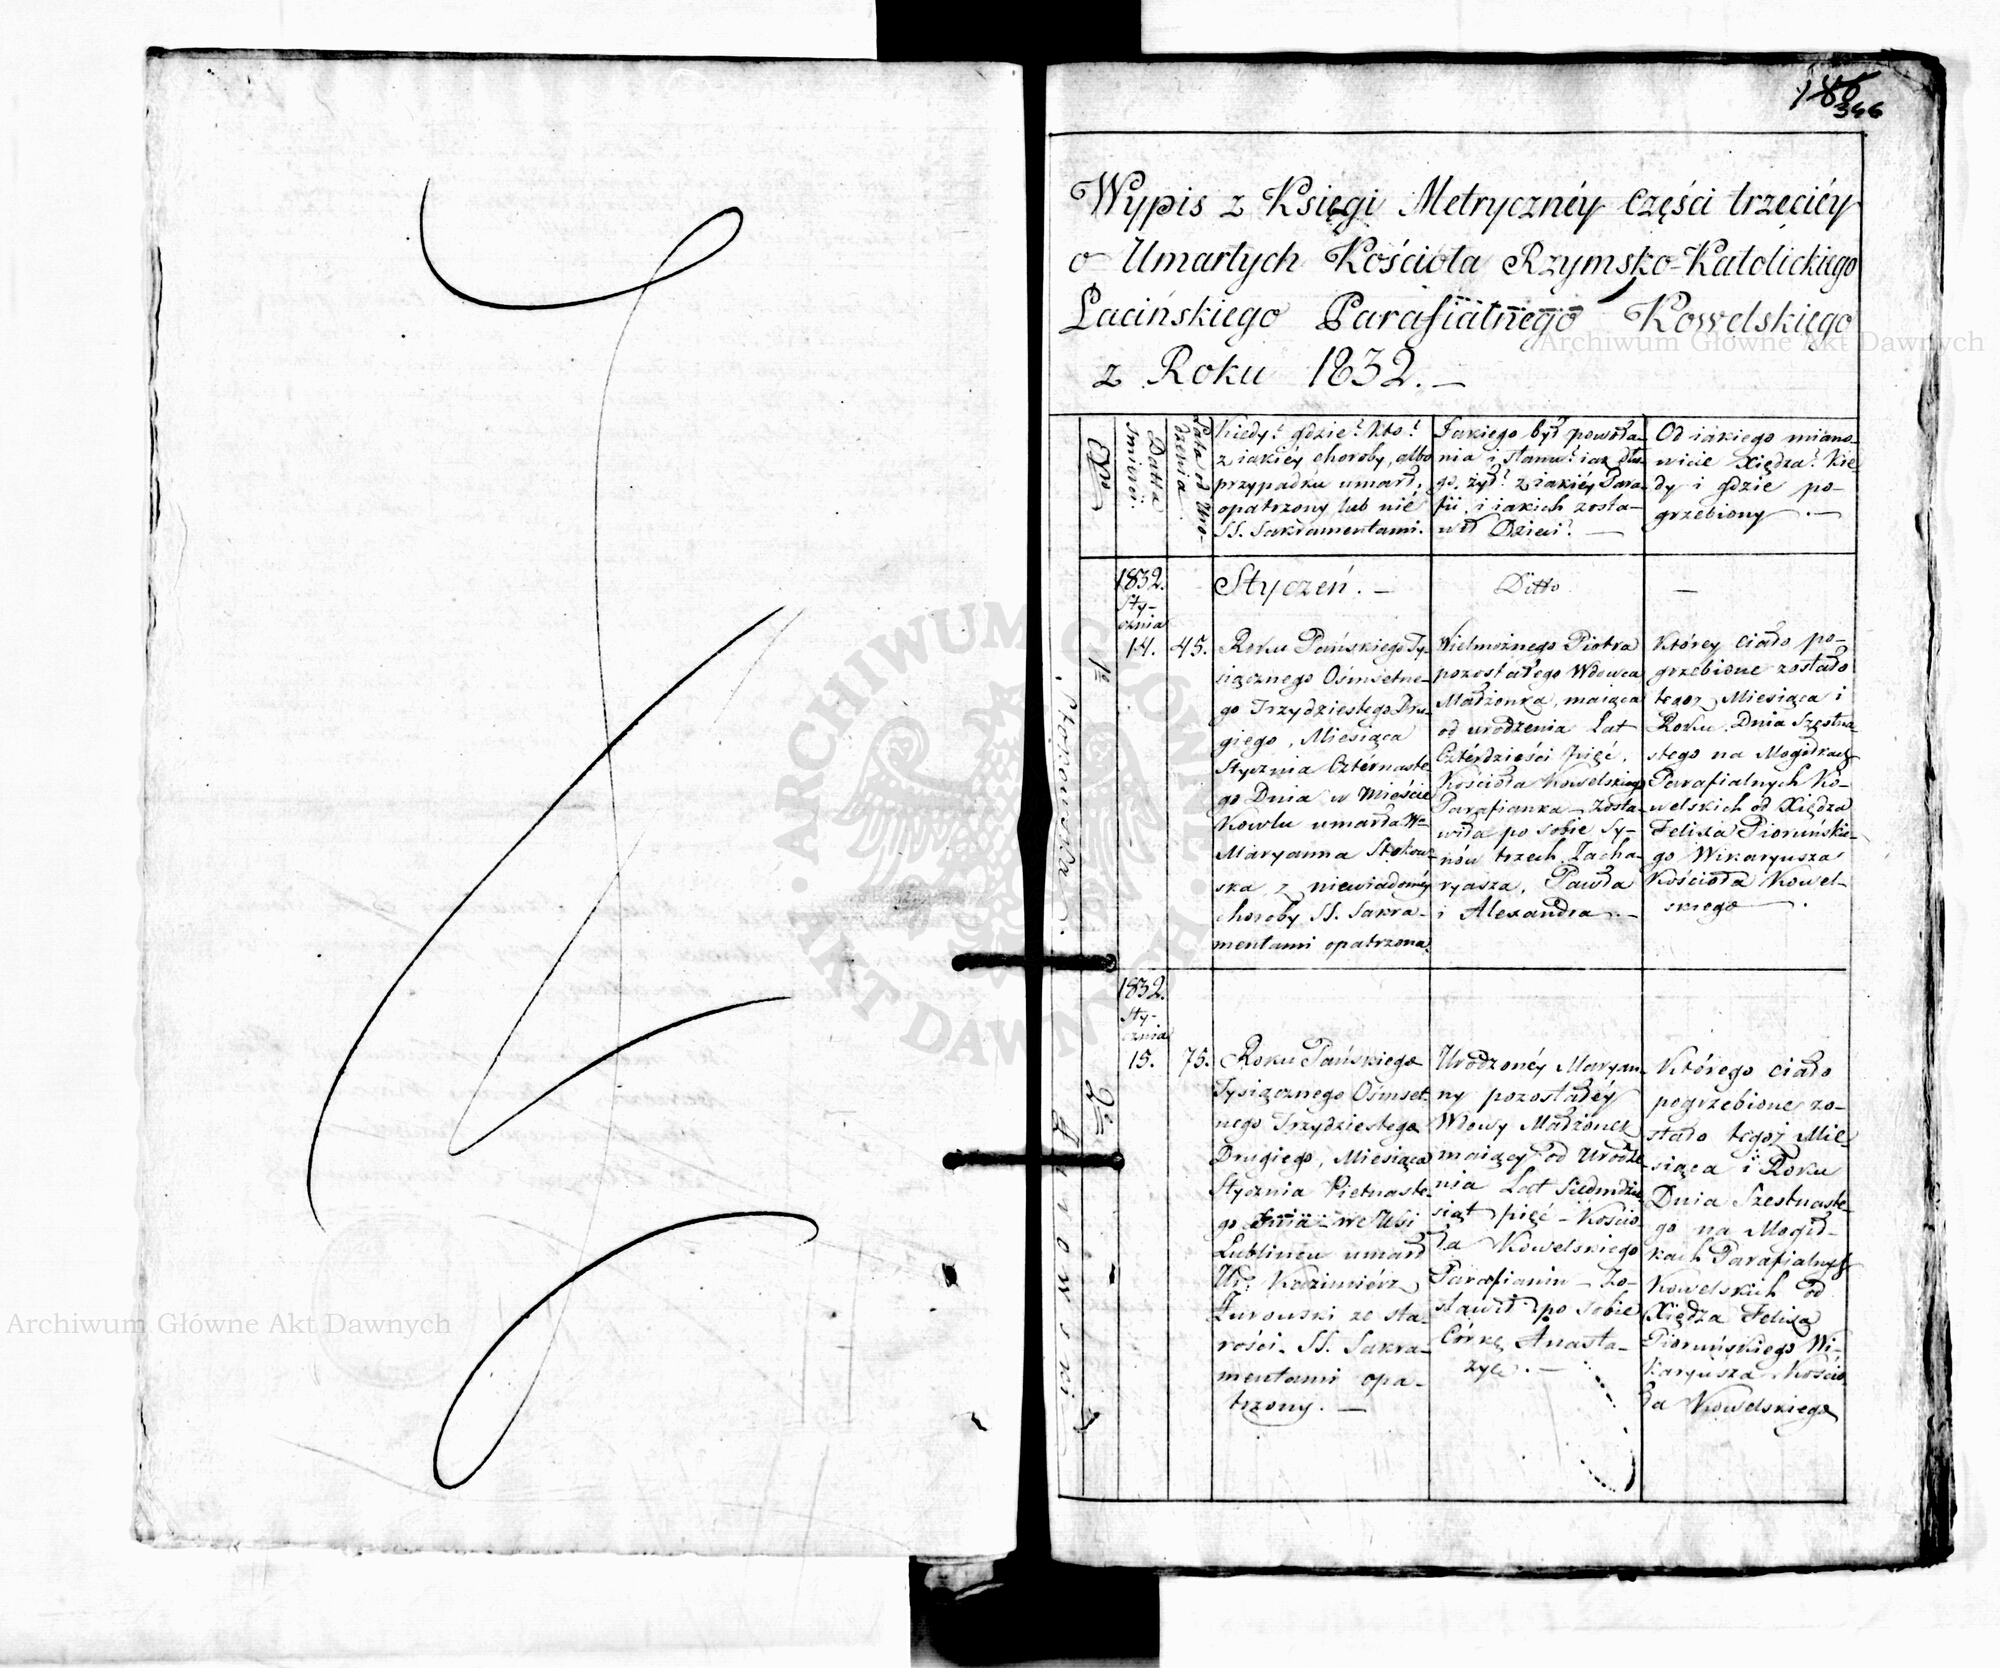 186
346
Wypis z Księgi Metrycznéy części trzeciéy
o Umarłych Kościoła Rzymsko-Katolickiego
Łacińskiego Parafialnego Kowelskiego
z Roku 1832. —
Datta Śmierci.
Lata od Urodzenia
Kiedy? gdzie? kto?
z iakiéy choroby, albo
przypadku umarł,
opatrzony lub nié
SS. Sakramentami.
Jakiego był powoła-
nia i stanu? iak dłu-
go żył? z iakiéy Para-
fii, i iakich zosta-
wił Dzieci? —
Od iakiego miano-
wicie Xiędza? kie-
dy i gdzie po-
grzebiony —
1832.
Sty-
cznia
14.
45.
Styczeń. —
Ditto
—
1e
Stokowska
Roku Pańskiego Ty-
siącznego Ośmsetne-
go Trzydziestego Dru-
giego, Miesiąca
Stycznia Czternaste-
go Dnia w Mieście
Kowlu umarła W
Maryanna Stokow-
ska z niewiadoméy
choroby SS. Sakra-
mentami opatrzona.
Wielmożnego Piotra
pozostałego Wdowca
Małżonka, maiąca
od urodzenia Lat
Czterdzieści Pięć,
Kościoła Kowelskiego
Parafianka — zosta-
wiła po sobie Sy-
nów trzech, Zacha-
ryasza, Pawła
i Alexandra. —
Którey ciało po-
grzebione zostało
tegoż Miesiąca i
Roku Dnia Szestna-
stego na Mogiłkach
Parafialnych Ko-
welskich od Xiędza
Felixa Pioruńskie-
go Wikaryusza
Kościoła Kowel-
skiego —.
1832.
Sty-
cznia
15.
75.
2e
Żurowski
Roku Pańskiego
Tysiącznego Ośmset-
nego Trzydziestego
Drugiego, Miesiąca
Stycznia Pietnaste-
go Dnia we Wsi
Lublincu umarł
Ur. Kazimiérz
Żurowski ze sta-
rości. SS. Sakra-
mentami opa-
trzony. —
Urodzonéy Maryan-
ny pozostałéy
Wdowy Małżonek
maiący od Urodze-
nia Lat Siedmdzie-
siąt pięć — Kościo-
ła Kowelskiego
Parafianin — Zo-
stawił po sobie
Córkę Anasta-
zyę. —
Którego ciało
pogrzebione zo-
stało tegoż Mie-
siąca i Roku
Dnia Szestnaste-
go na Mogił-
kach Parafialnych
Kowelskich od
Xiędza Felixa
Pioruńskiego Wi-
karyusza Kościo-
ła Kowelskiego
Archiwum Główne Akt Dawnych
Archiwum Główne Akt Dawnych
ARCHIWUM GŁÓWNE · AKT DAWNYCH ·